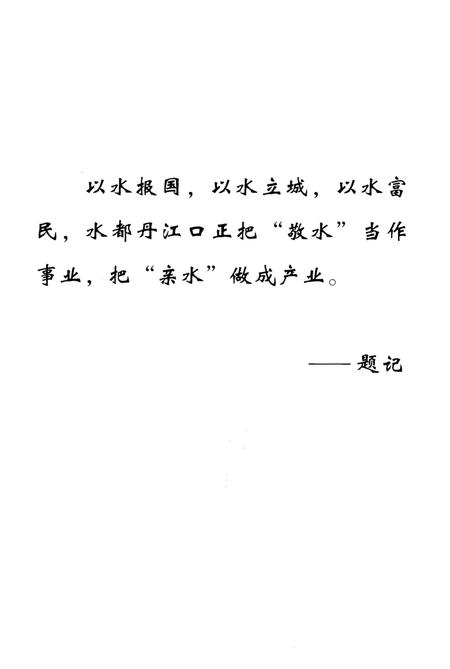 以水报国，以水立城，以水富
民，水都丹江口正把“敬水”当作
事业，把“亲水”做成产业。
——题记